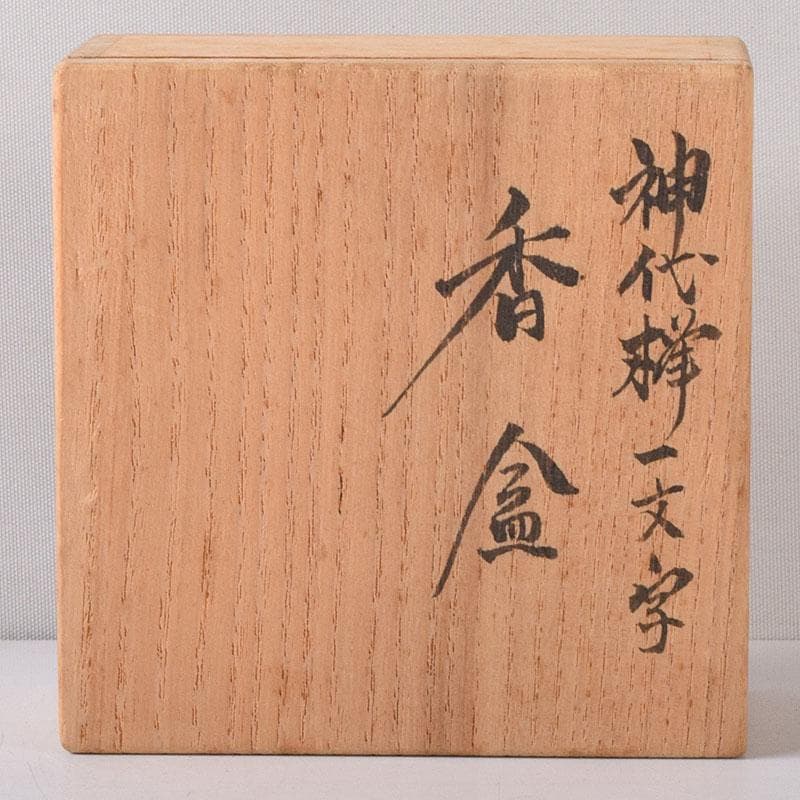 神代欅一文字
香盒